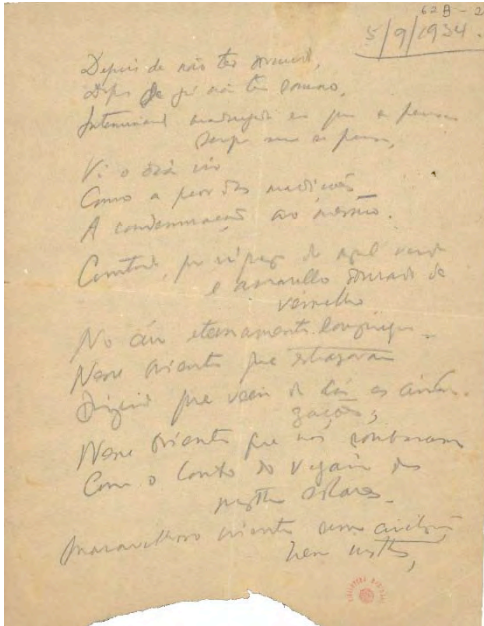 62B - 2
5/9/1934.
Depois de não ter dormido,
Depois de já não ter somno,
Interminavel madrugada em que se pensa
sempre sem se pensar,
Vi o dia vir
Como a peor das maldições –
A condemnação ao mesmo.
Comtudo, que riqueza de azul verde
e amarello dourado de
vermelho
No céu eternamente longinquo –
Nesse oriente que estragaram
Dizendo que veem de lá as civili-
zações;
Nesse oriente que nos roubaram
Com o Conto do Vigario dos
mythos solares,
Maravilhoso oriente sem civilizações
nem mythos,